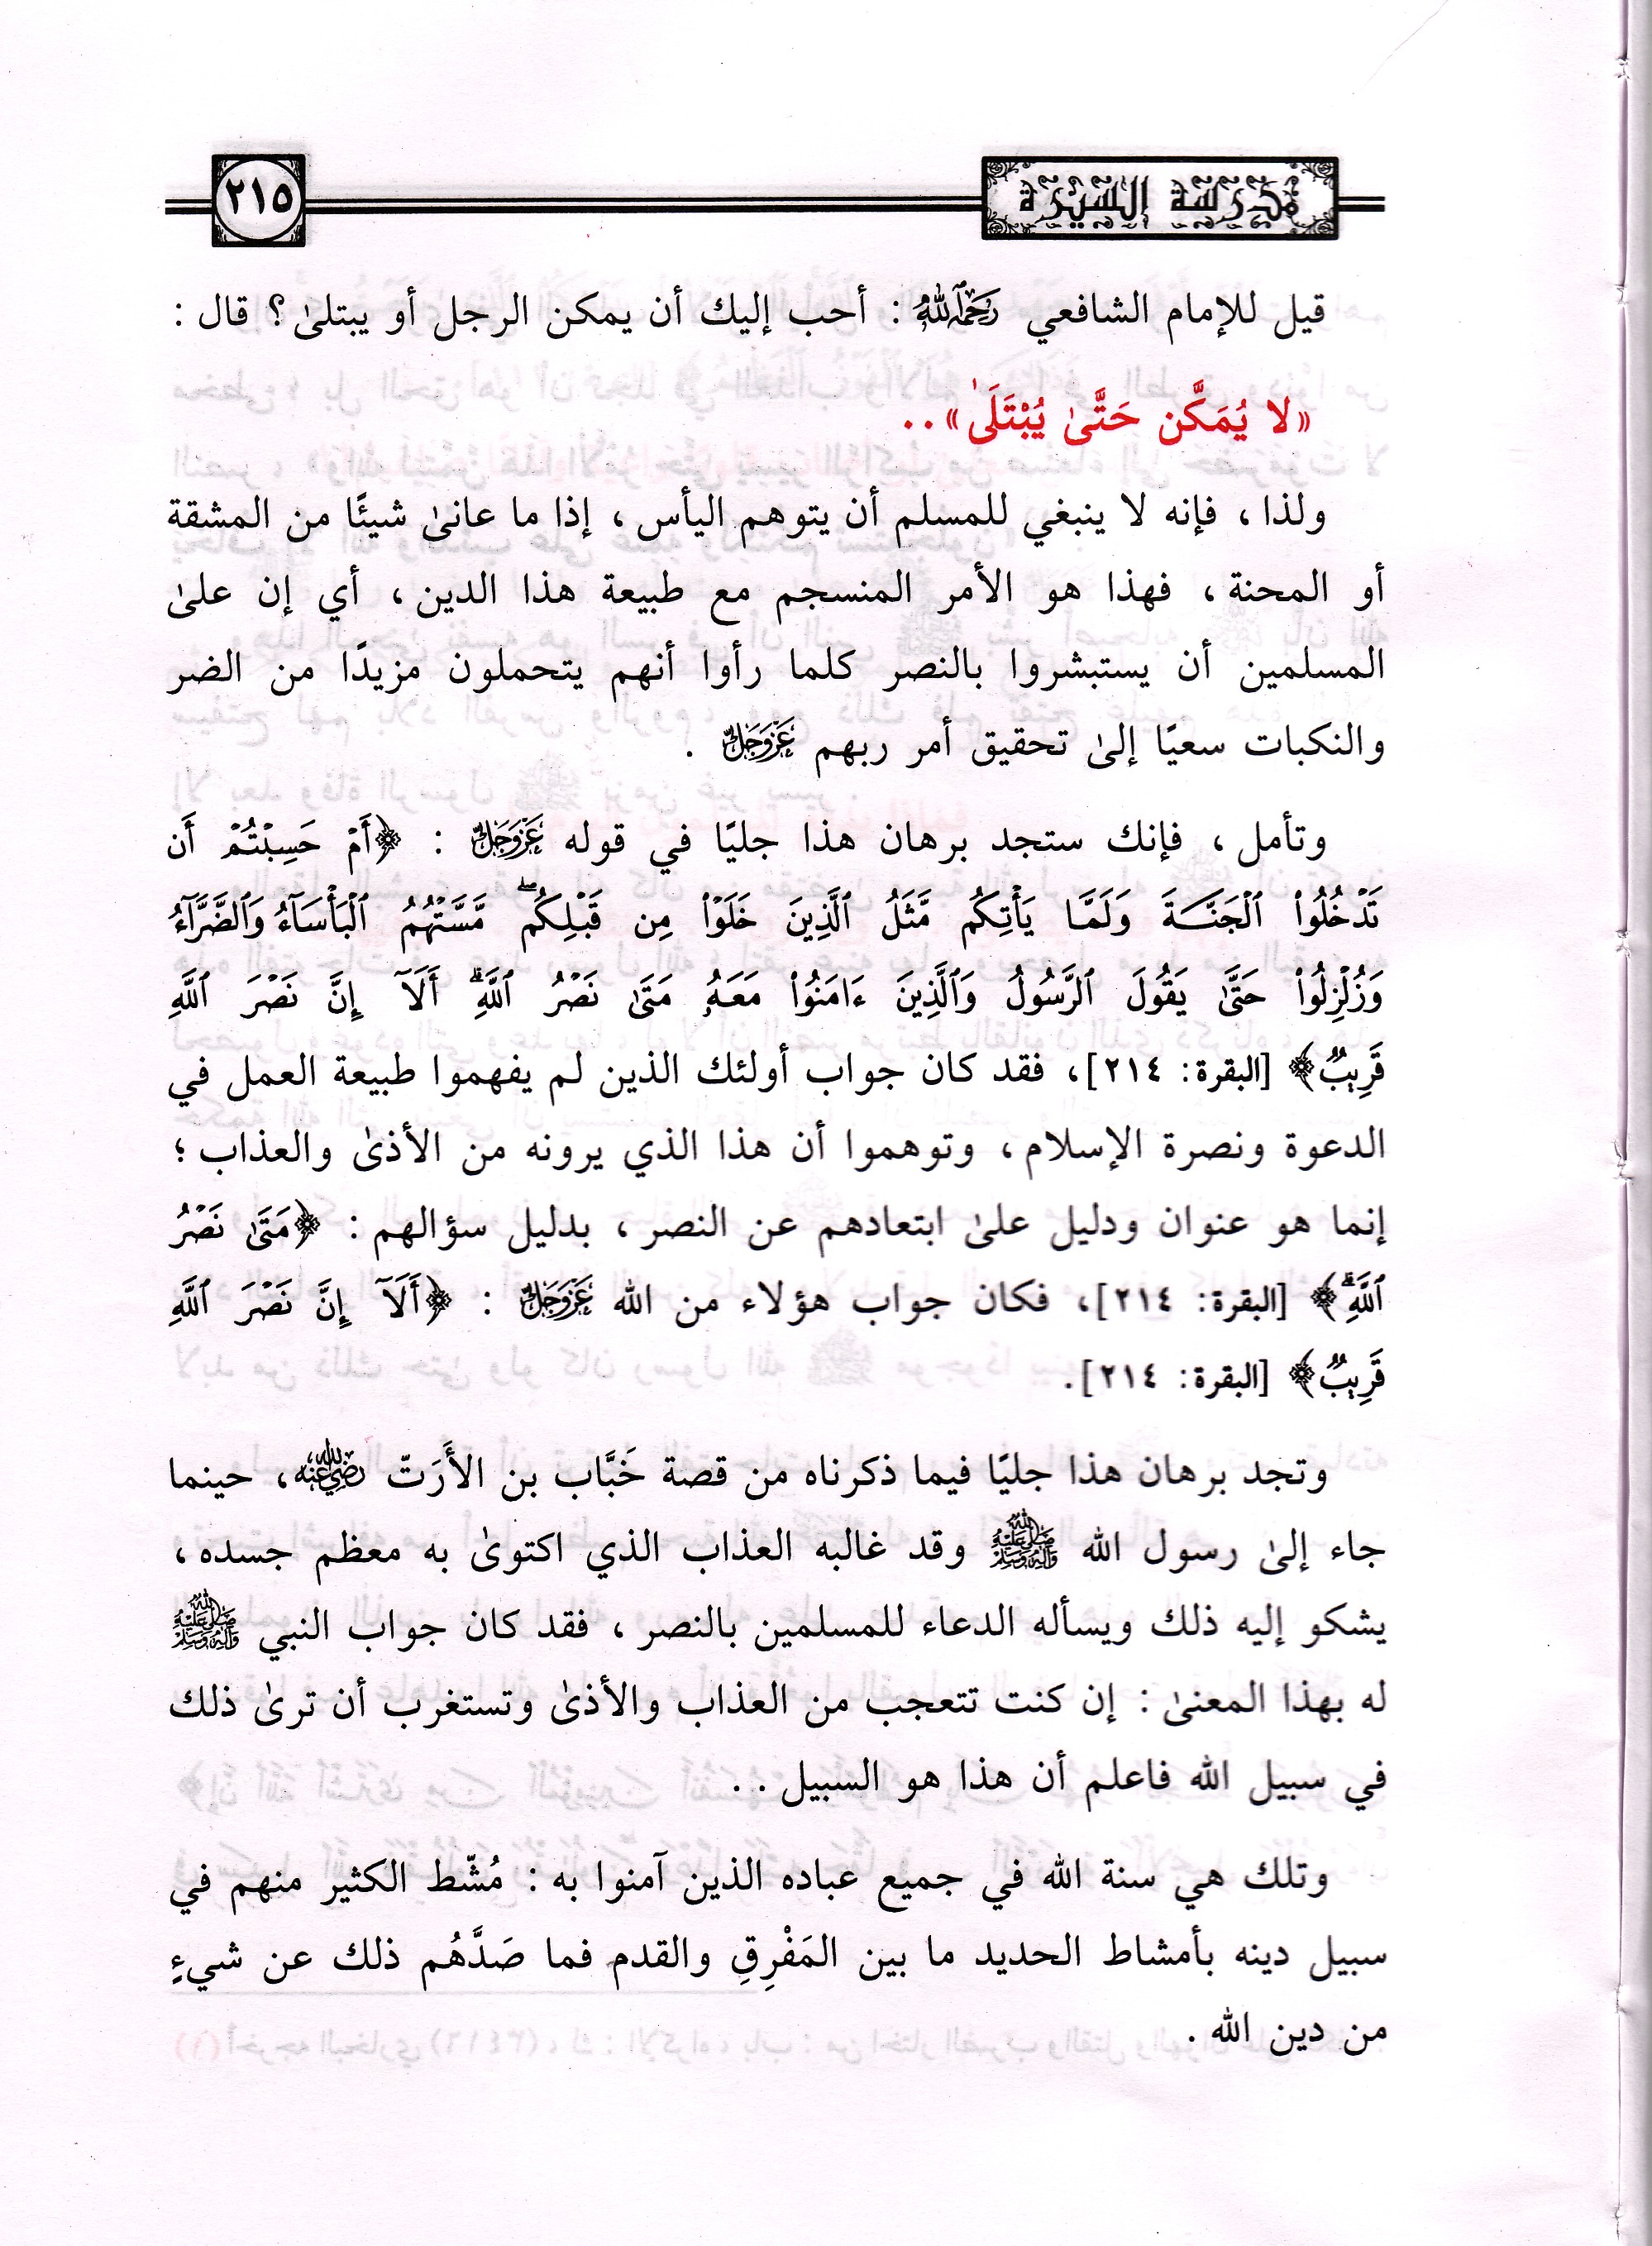 مدرسة السيرة
٢١٥
قيل للإمام الشافعي رَحِمَهُ ٱللَّهُ : أحب إليك أن يمكن الرجل أو يبتلىٰ ؟ قال :
«لا يُمَكَّن حَتَّىٰ يُبْتَلَىٰ» . .
ولذا ، فإنه لا ينبغي للمسلم أن يتوهم اليأس ، إذا ما عانىٰ شيئًا من المشقة
أو المحنة ، فهذا هو الأمر المنسجم مع طبيعة هذا الدين ، أي إن علىٰ
المسلمين أن يستبشروا بالنصر كلما رأوا أنهم يتحملون مزيدًا من الضر
والنكبات سعيًا إلىٰ تحقيق أمر ربهم عَزَّوَجَلَّ .
وتأمل ، فإنك ستجد برهان هذا جليًا في قوله عَزَّوَجَلَّ : ﴿أَمْ حَسِبْتُمْ أَن
تَدْخُلُوا۟ ٱلْجَنَّةَ وَلَمَّا يَأْتِكُم مَّثَلُ ٱلَّذِينَ خَلَوْا۟ مِن قَبْلِكُم ۖ مَّسَّتْهُمُ ٱلْبَأْسَآءُ وَٱلضَّرَّآءُ
وَزُلْزِلُوا۟ حَتَّىٰ يَقُولَ ٱلرَّسُولُ وَٱلَّذِينَ ءَامَنُوا۟ مَعَهُۥ مَتَىٰ نَصْرُ ٱللَّهِ ۗ أَلَآ إِنَّ نَصْرَ ٱللَّهِ
قَرِيبٌ﴾ [البقرة: ٢١٤]، فقد كان جواب أولئك الذين لم يفهموا طبيعة العمل في
الدعوة ونصرة الإسلام ، وتوهموا أن هذا الذي يرونه من الأذىٰ والعذاب ؛
إنما هو عنوان ودليل علىٰ ابتعادهم عن النصر ، بدليل سؤالهم : ﴿مَتَىٰ نَصْرُ
ٱللَّهِ ۗ﴾ [البقرة: ٢١٤]، فكان جواب هؤلاء من الله عَزَّوَجَلَّ : ﴿أَلَآ إِنَّ نَصْرَ ٱللَّهِ
قَرِيبٌ﴾ [البقرة: ٢١٤].
وتجد برهان هذا جليًا فيما ذكرناه من قصة خَبَّاب بن الأَرَتّ رَضِيَ اللَّهُ عَنْهُ ، حينما
جاء إلىٰ رسول الله ﷺ وقد غالبه العذاب الذي اكتوىٰ به معظم جسده ،
يشكو إليه ذلك ويسأله الدعاء للمسلمين بالنصر ، فقد كان جواب النبي ﷺ
له بهذا المعنىٰ : إن كنت تتعجب من العذاب والأذىٰ وتستغرب أن ترىٰ ذلك
في سبيل الله فاعلم أن هذا هو السبيل . .
وتلك هي سنة الله في جميع عباده الذين آمنوا به : مُشّط الكثير منهم في
سبيل دينه بأمشاط الحديد ما بين المَفْرِقِ والقدم فما صَدَّهُم ذلك عن شيءٍ
من دين الله .